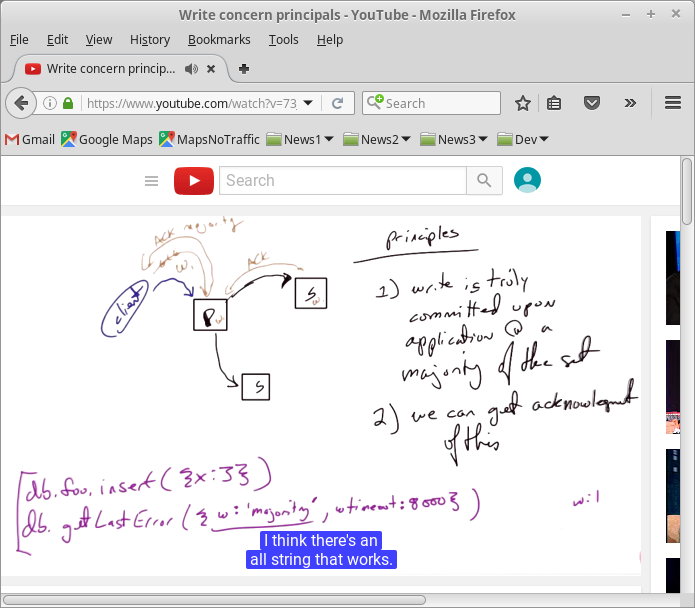 Write concern principals - YouTube - Mozilla Firefox
File Edit View History Bookmarks Tools Help
Write concern princip...
https://www.youtube.com/watch?v=73
Search
Gmail Google Maps MapsNoTraffic News1 News2 News3 Dev
Search
ACK majority
w.
ACK
client
P w
S w.
S
principles
1) write is truly
committed upon
application @ a
majority of the set
2) we can get acknowlegment
of this
db.foo.insert({x:3})
db.getLastError({w:'majority', wtimeout:8000})
w:1
I think there's an
all string that works.